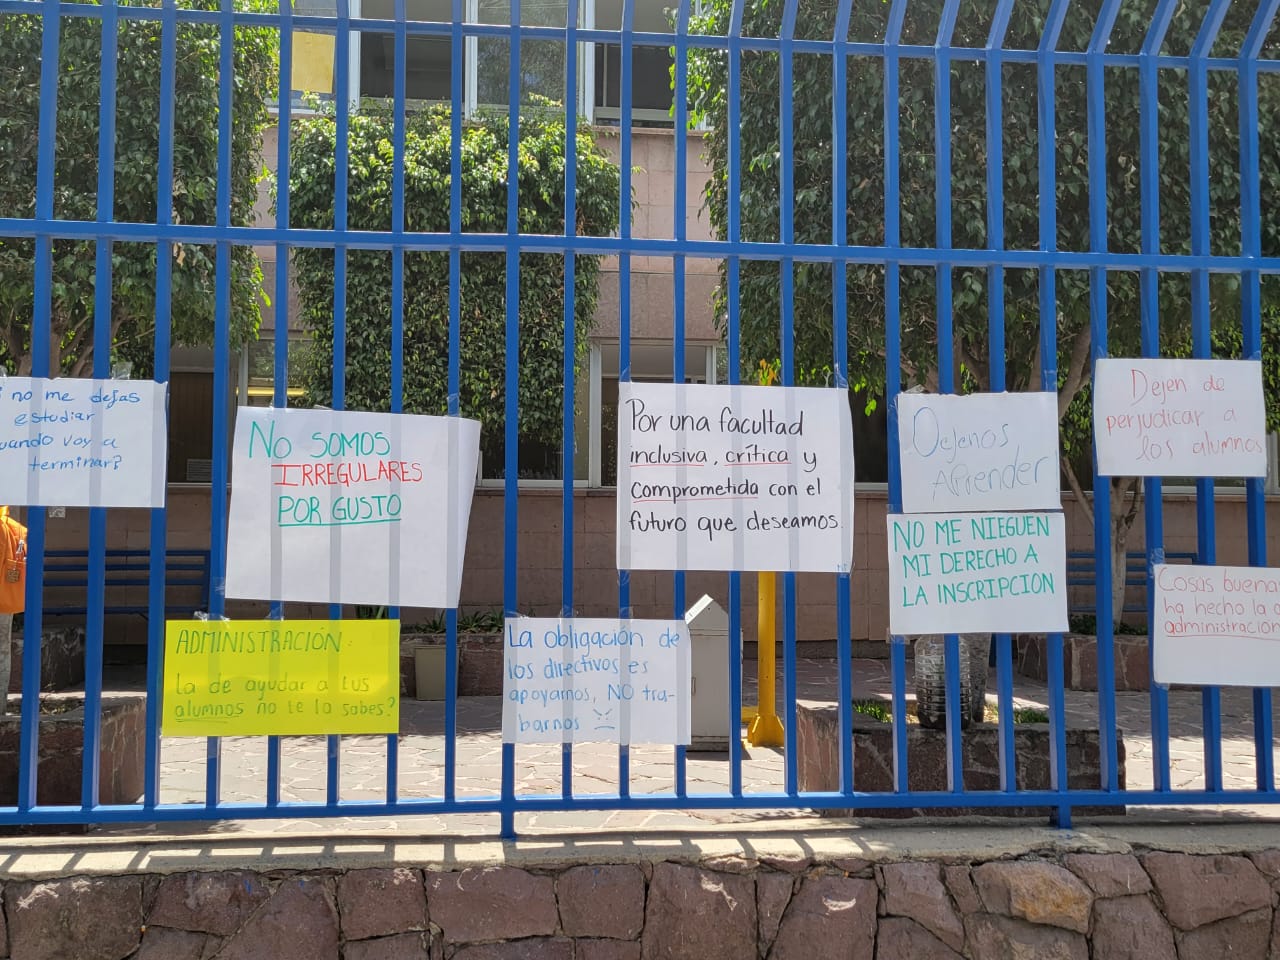 no me dejas
estudiar
cuando voy a
terminar?
NO SOMOS
IRREGULARES
POR GUSTO
ADMINISTRACIÓN:
la de ayudar a tus
alumnos no te la sabes?
La obligación de
los directivos es
apoyarnos, NO tra-
barnos
Por una facultad
inclusiva, crítica y
comprometida con el
futuro que deseamos.
Dejenos
Aprender
NO ME NIEGUEN
MI DERECHO A
LA INSCRIPCION
Dejen de
perjudicar a
los alumnos
Cosas buenas
ha hecho la
administración